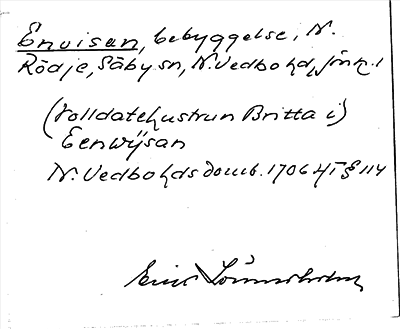 Envisan, bebyggelse, N.
Rödje, Säby sn, N. Vedbo hd, Jönk. l
(Solldatehustrun Britta i)
Eenwÿsan
N. Vedbo hds domb. 1706 HT § 114
Eric